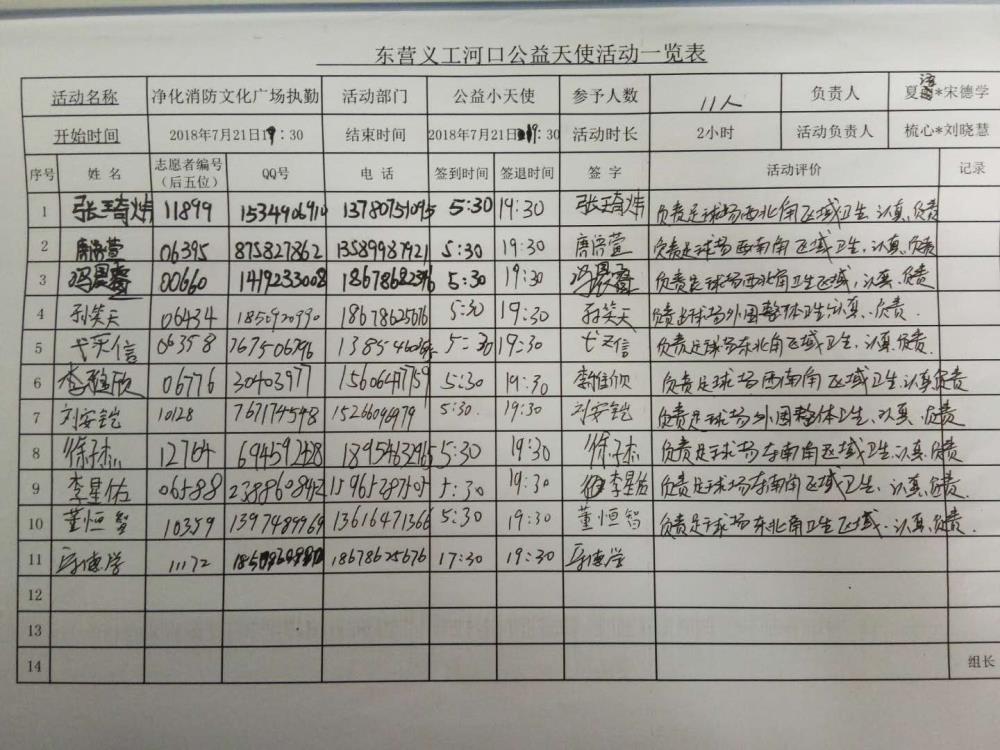 东营义工河口公益天使活动一览表
活动名称 净化消防文化广场执勤 活动部门 公益小天使 参予人数 11人 负责人 夏 *宋德学
开始时间 2018年7月21日 :30 结束时间 2018年7月21日 9:30 活动时长 2小时 活动负责人 梳心*刘晓慧
序号 姓 名 志愿者编号(后五位) QQ号 电 话 签到时间 签退时间 签 字 活动评价 记录
1 11899 1534906910 5:30 19:30 负责足球场西北角区域卫生、认真、负责
2 唐浴萱 06395 875827862 13589987921 5:30 19:30 唐浴萱 负责足球场西南角区域卫生、认真、负责
3 00660 1419233008 5:30 19:30 负责足球场西北角卫生区域、认真、负责
4 孙笑天 06434 18678625676 5:30 19:30 孙笑天 负责足球场外围整体卫生认真、负责.
5 06358 5:30 19:30 负责足球场东北角区域卫生、认真、负责.
6 06776 30403977 15606477759 5:30 19:30 负责足球场西南角区域卫生、认真负责
7 刘安铠 10128 767174548 15266094979 5:30. 19:30 刘安铠 负责足球场外围整体卫生、认真、负责
8 徐子杰 12764 694592428 5:30 19:30 徐子杰 负责足球场东南角区域卫生、认真、负责.
9 李星佑 06588 238860842 5:30 19:30 李星佑 负责足球场东南角区域卫生、认真、负责.
10 董恒智 10359 1397489969 13616471366 5:30 19:30 董恒智 负责足球场东北角卫生区域、认真、负责.
11 宋德学 11172 18678625676 17:30 19:30 宋德学
12
13
14 组长